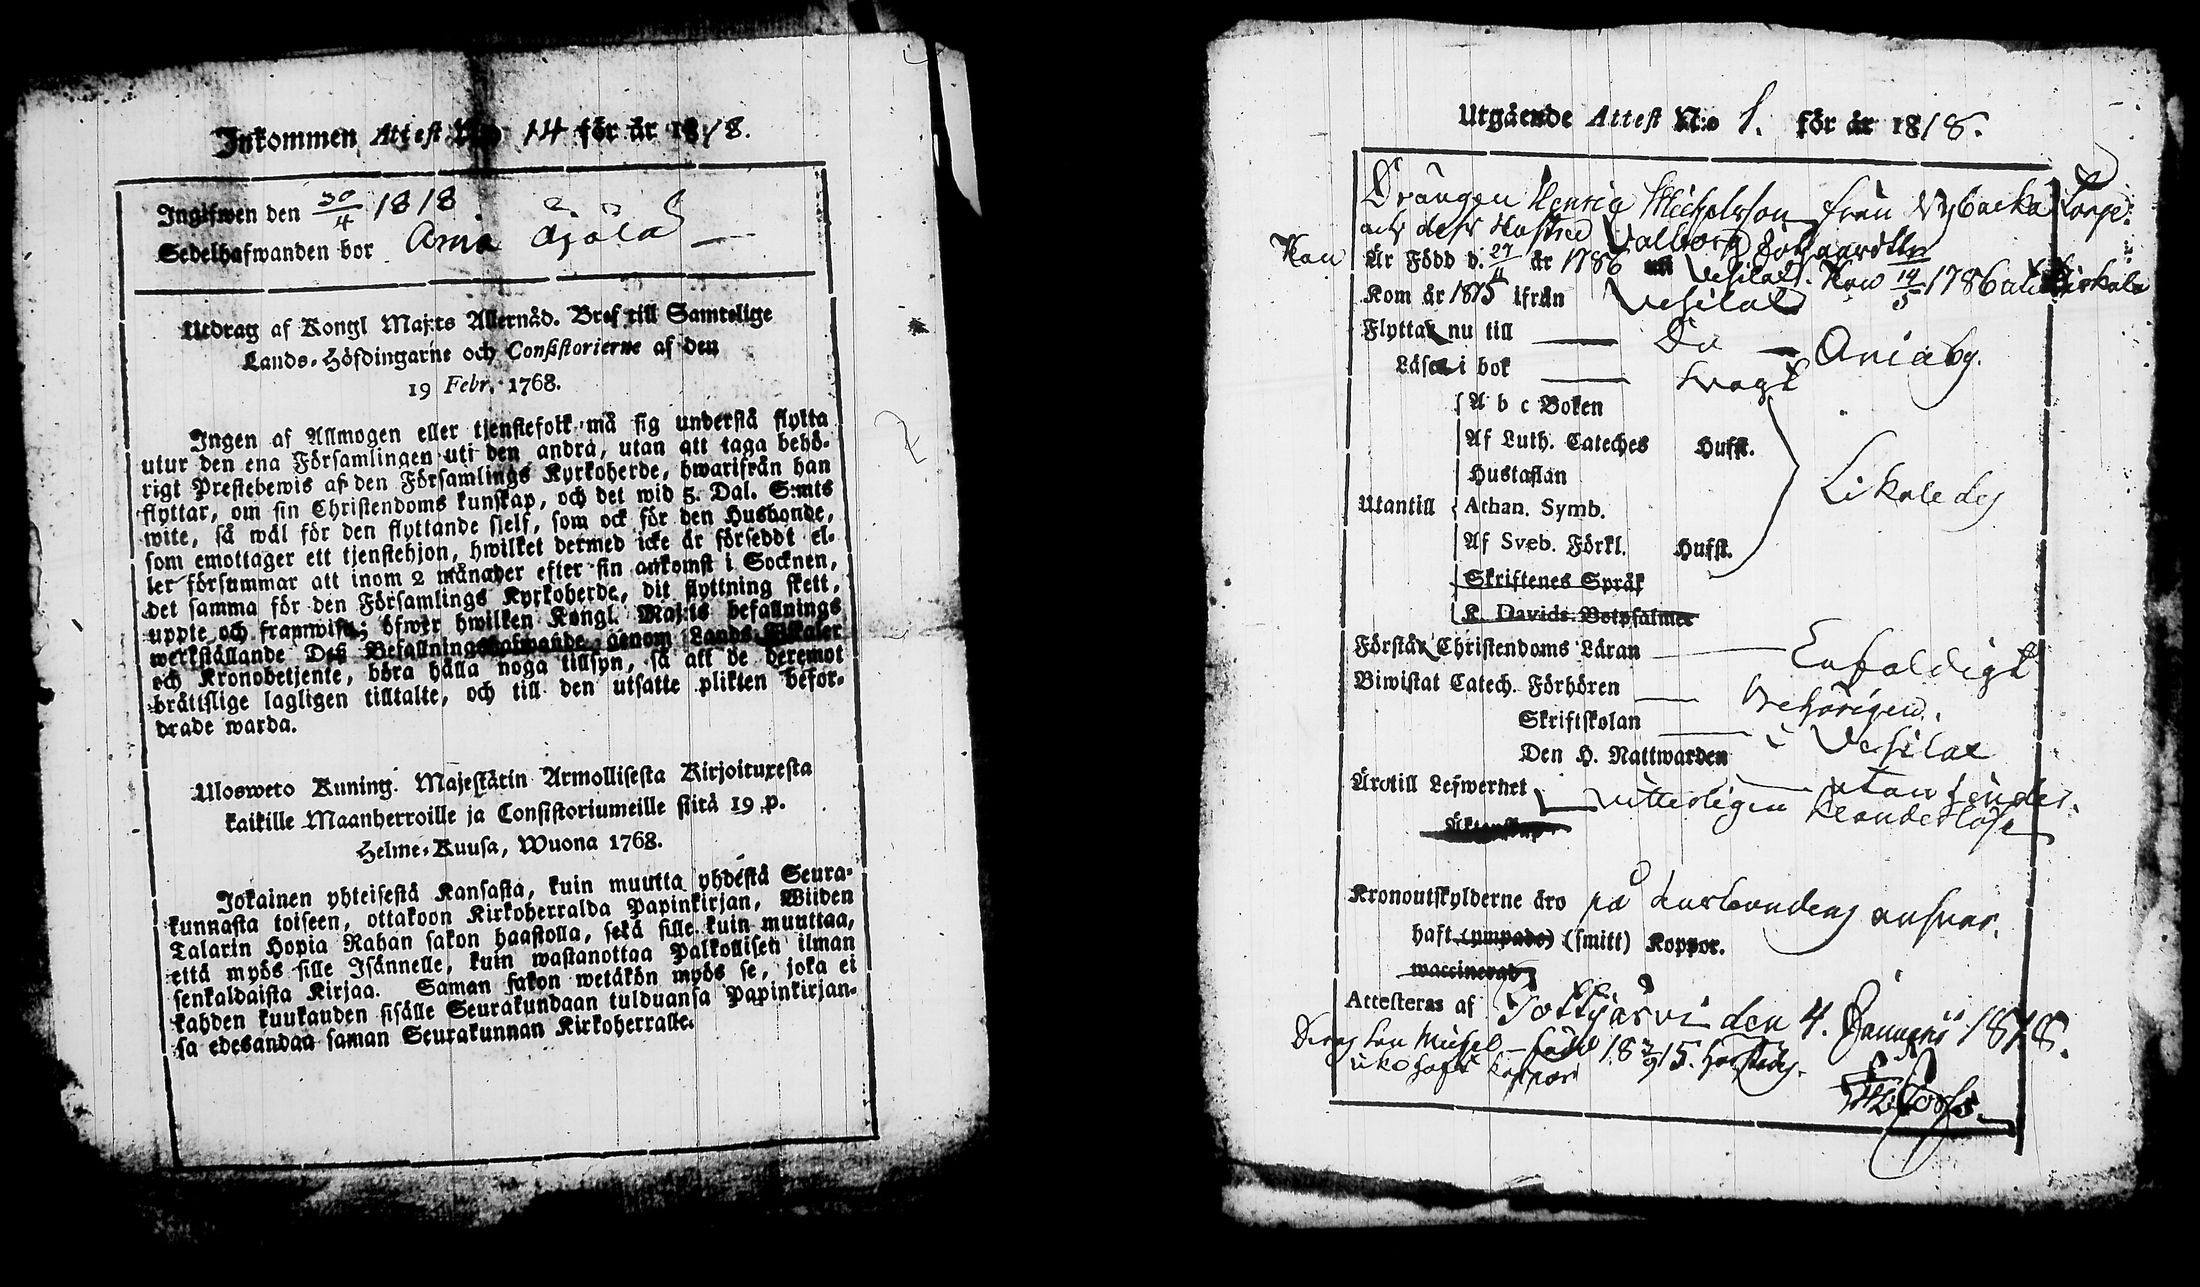 Inkommen Attest N:o 14 för år 1818.
Ingifwen den 30/4 1818
Sedelhafwanden bor Ania Äjälä
Utdrag af Kongl Maj:ts Allernåd. Bref till Samtelige
Lands-Höfdingarne och Consistorierne af den
19 Febr. 1768.
Ingen af Allmogen eller tjenstefolk må sig understå flytta
utur den ena Församlingen uti den andra, utan att taga behö-
rigt Prestebewis af den Församlings Kyrkoherde, hwarifrån han
flyttar, om sin Christendoms kunskap, och det wid 5. Dal. S:mts
wite, så wäl för den flyttande sielf, som ock för den Husbonde,
som emottager ett tjenstehjon, hwilket dermed icke är försedt el-
ler försummar att inom 2 månader efter sin ankomst i Socknen,
det samma för den Församlings Kyrkoherde, dit flyttning skett,
uppte och framwisa; öfwer hwilken Kongl. Maj:ts befallnings
werkställande Deß Befallningshafwande genom Lands-Fiskaler
och Kronobetjente, böra hålla noga tillsyn, så att de deremot
brättslige lagligen tilltalte, och till den utsatte plikten beför-
drade warda.
Ulosweto Kuning. Majestätin Armollisesta Kirjoituxesta
kaikille Maanherroille ja Consistoriumeille siitä 19 p.
Helme-Kuusa, Wuona 1768.
Jokainen yhteisestä Kansasta, kuin muutta yhdestä Seura-
kunnasta toiseen, ottakoon Kirkoherralda Papinkirjan, Wiiden
Talarin Hopia Rahan sakon haastolla, sekä sille kuin muuttaa,
että myös sille Isännelle, kuin wastanottaa Palkollisen ilman
senkaldaista Kirjaa. Saman sakon wetäkön myös se, joka ei
kahden kuukauden sisälle Seurakundaan tulduansa Papinkirjan-
sa edesandaa saman Seurakunnan Kirkoherralle.
Utgående Attest N:o 1. för år 1818.
Drängen Henric Michelsson från Nybacka Torp
och dess Hustru Valborg
Han Är Född d. 27/11 år 1786 i Vesilax. Hon 14/5 1786
Kom år 1815 ifrån Vesilax
Flyttar nu till Do Ania by.
Läser i bok svagt
A b c Boken
Af Luth. Cateches Hufst.
Hustaflan
Utantill Athan. Symb. Likaledes
Af Sveb. Förkl. Hufst.
Skriftenes Språk
K. Davids Botpsalmer
Förstår Christendoms Läran Enfaldigt
Biwistat Catech. Förhören behörigen
Skriftskolan i Vesilax
Den H. Nattwarden utan hinder.
Äro till Lefwernet vitterligen klanderlöse
Äktenskap
Kronoutskylderne äro på husbondens ansvar.
haft (ympade) (smitt) Koppor.
waccinerad
Attesteras af Tottijärvi den 4. Januarii 1818.
Deras son Michel född 18 2/9 15.
icke haft koppor